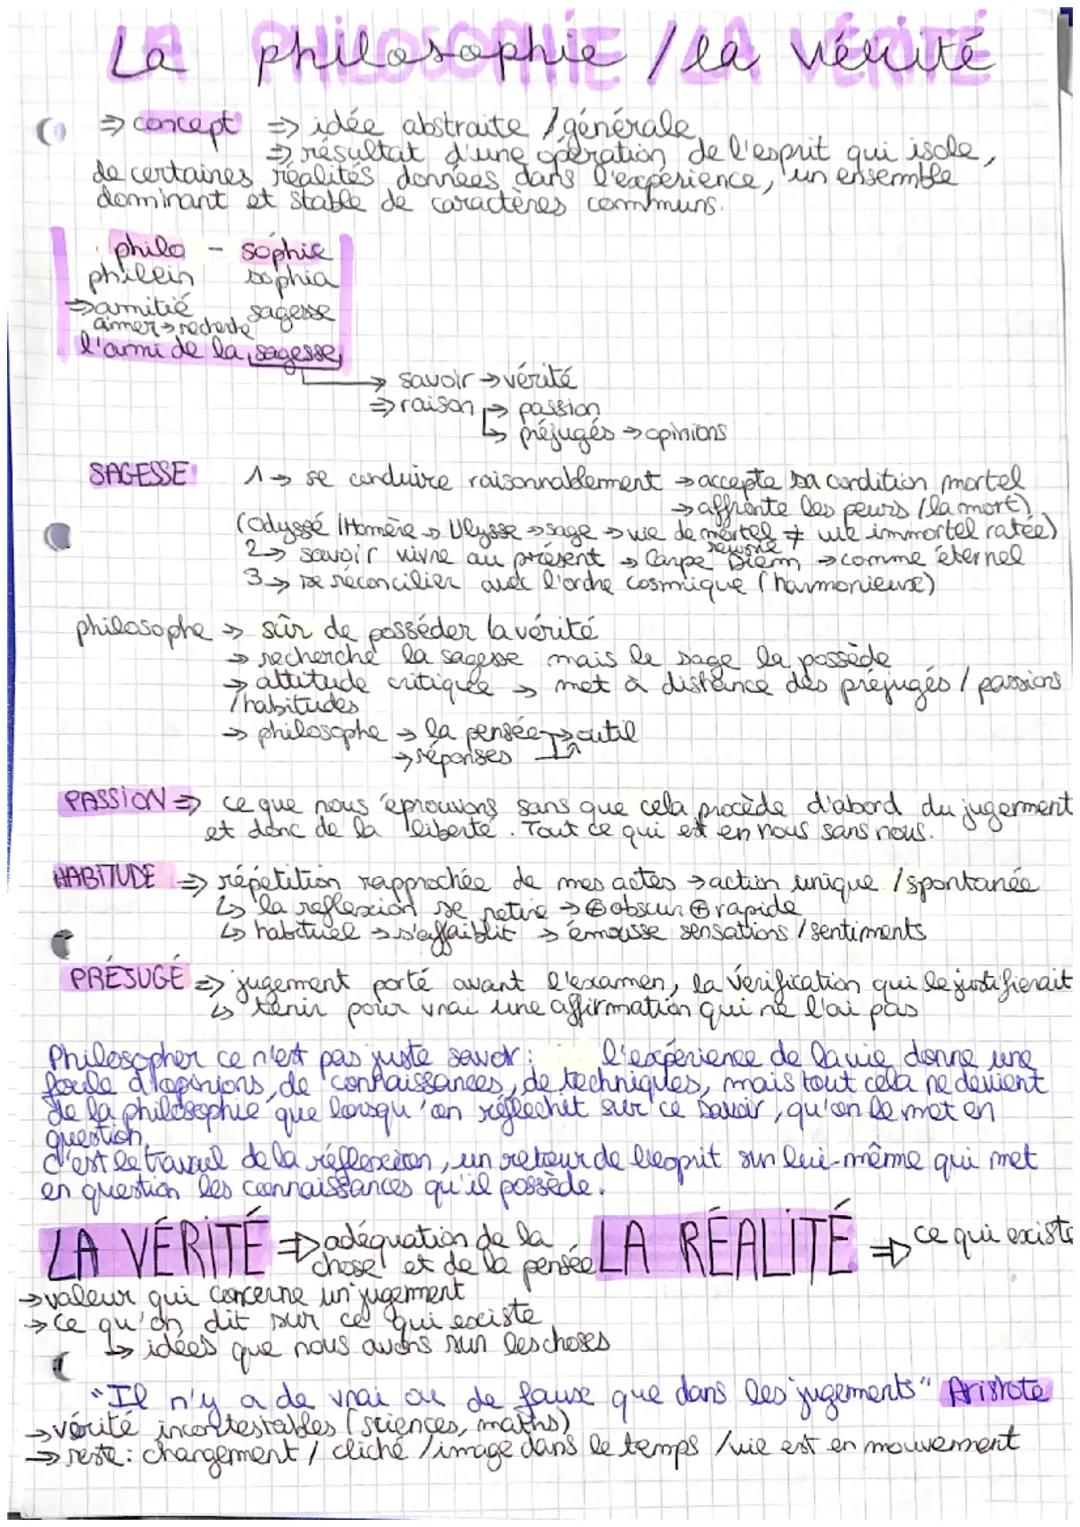 La philosophie / la vérité
⇒ concept ⇒ idée abstraite / générale
⇒ résultat d'une opération de l'esprit qui isole,
de certaines réalités données dans l'expérience, un ensemble
dominant et stable de caractères communs.
philo - sophie
philein sophia
⇒ amitié sagesse
aimer → recherche
l'ami de la sagesse
→ savoir → vérité
⇒ raison → passion
↳ préjugés → opinions
SAGESSE 1 → se conduire raisonnablement → accepte sa condition mortel
→ affronte les peurs (la mort)
(Odyssé / Homère → Ulysse → sage → vie de mortel réussie ≠ vie immortel ratée)
2 → savoir vivre au présent → Carpe Diem → comme éternel
3 → se réconcilier avec l'ordre cosmique (harmonieux)
philosophe → sûr de posséder la vérité
→ recherche la sagesse mais le sage la possède
→ attitude critique → met à distance des préjugés / passions
/ habitudes
→ philosophe → la pensée → outil
→ réponses
PASSION ⇒ ce que nous éprouvons sans que cela procède d'abord du jugement
et donc de la liberté. Tout ce qui est en nous sans nous.
HABITUDE ⇒ répétition rapprochée de mes actes → action unique / spontanée
↳ la reflexion se retire → ⊕ obscur ⊕ rapide
↳ habituel → s'affaiblit → émousse sensations / sentiments
PRÉJUGÉ ⇒ jugement porté avant l'examen, la vérification qui le justifierait
↳ tenir pour vrai une affirmation qui ne l'ai pas
Philosopher ce n'est pas juste savoir : l'expérience de la vie donne une
foule d'opinions, de connaissances, de techniques, mais tout cela ne devient
de la philosophie que lorsqu'on réfléchit sur ce savoir, qu'on le met en
question.
C'est le travail de la réflexion, un retour de l'esprit sur lui-même qui met
en question les connaissances qu'il possède.
LA VÉRITÉ ⇒ adéquation de la
chose et de la pensée
LA RÉALITÉ ⇒ ce qui existe
→ valeur qui concerne un jugement
→ ce qu'on dit sur ce qui existe
↳ idées que nous avons sur les choses
"Il n'y a de vrai ou de faux que dans les jugements" Aristote
→ vérité incontestables (sciences, maths)
→ reste : changement / cliché / image dans le temps / vie est en mouvement